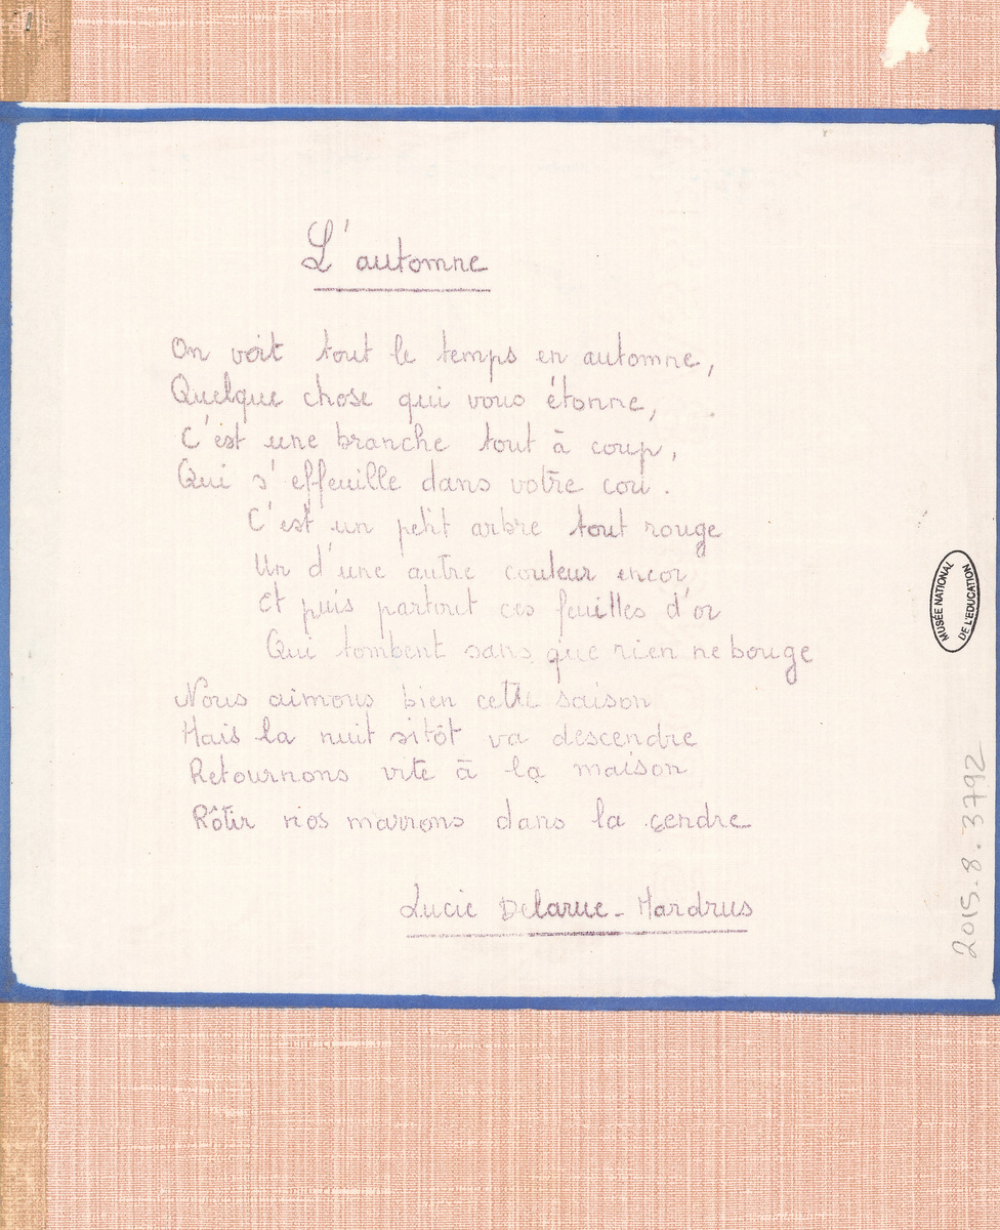 L'automne
On voit tout le temps en automne,
Quelque chose qui vous étonne,
C'est une branche tout à coup,
Qui s'effeuille dans votre cou.
C'est un petit arbre tout rouge
Un d'une autre couleur encor
Et puis partout ces feuilles d'or
Qui tombent sans que rien ne bouge
Nous aimons bien cette saison
Mais la nuit sitôt va descendre
Retournons vite à la maison
Rôtir nos marrons dans la cendre
Lucie Delarue-Mardrus
MUSÉE NATIONAL
DE L'EDUCATION
2015.8.3792